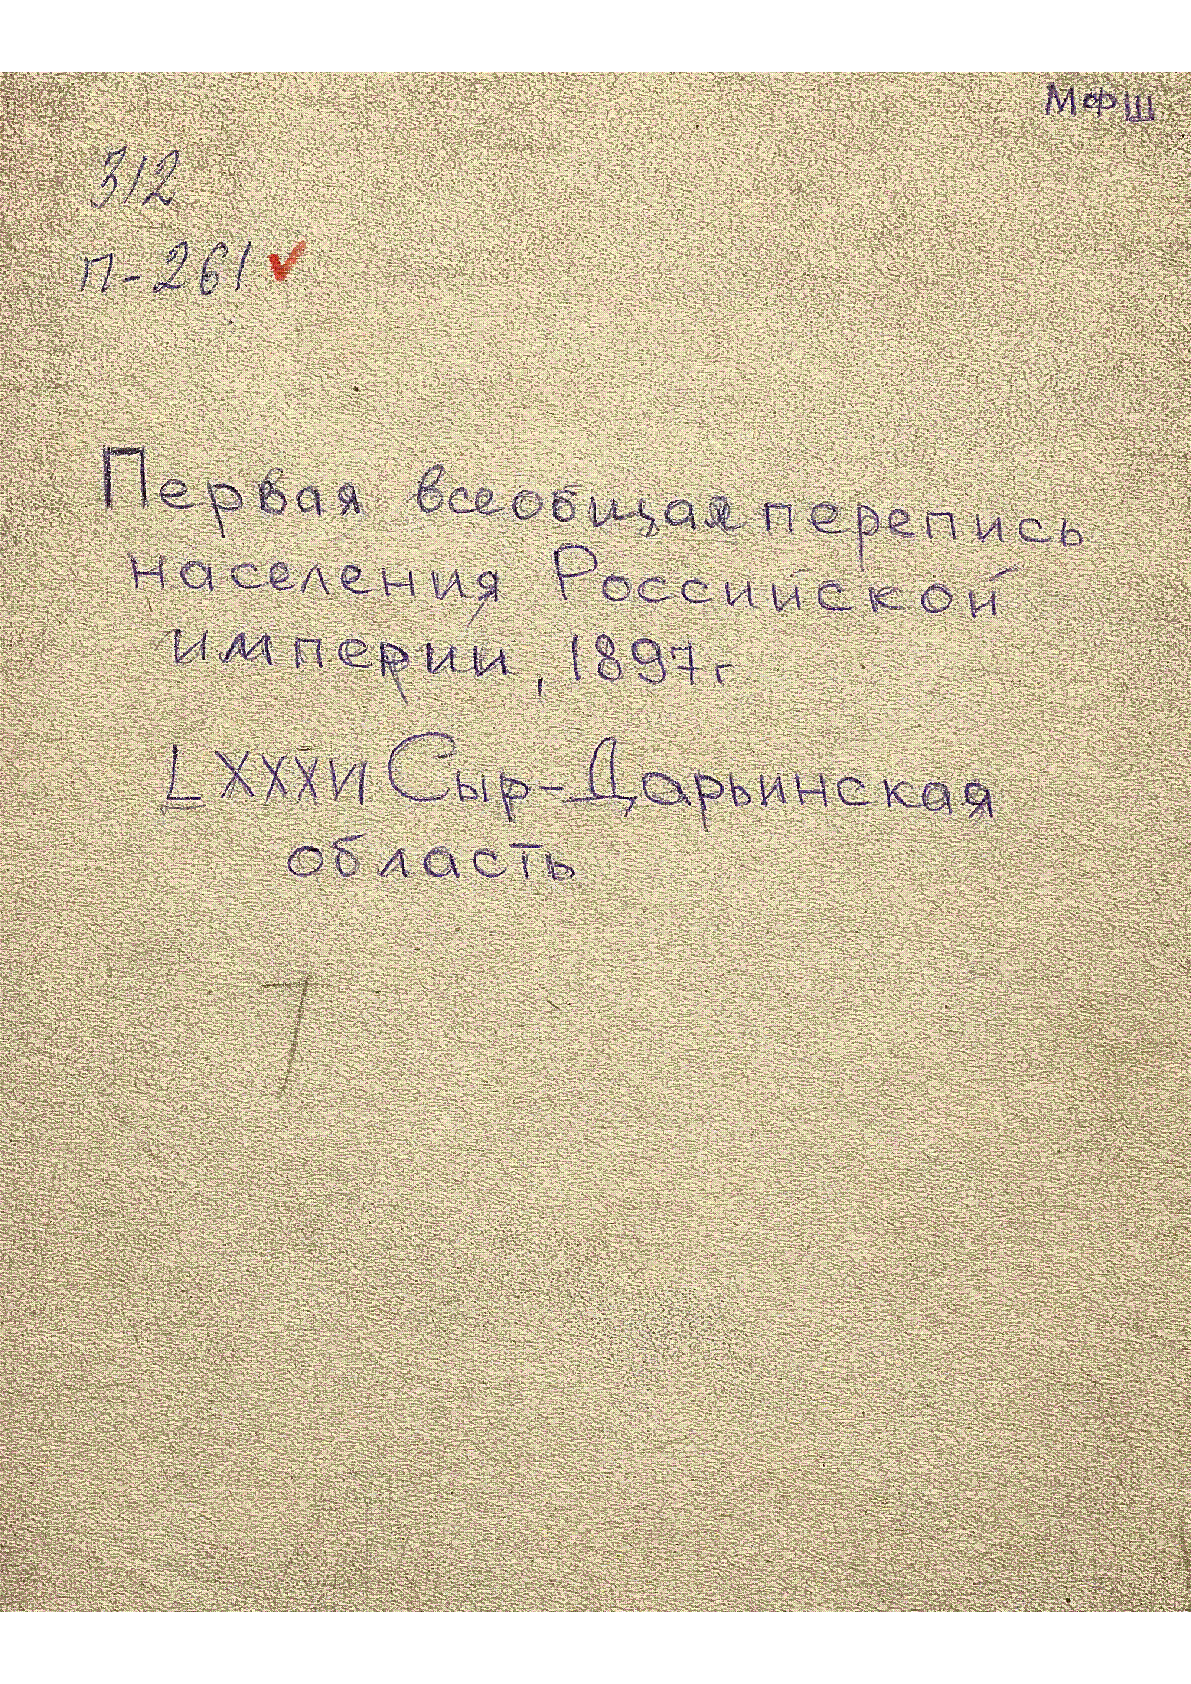 МФШ
312
П-261
Первая всеобщая перепись
населения Российской
империи, 1897г
LXXXVI Сыр-Дарьинская
область
7